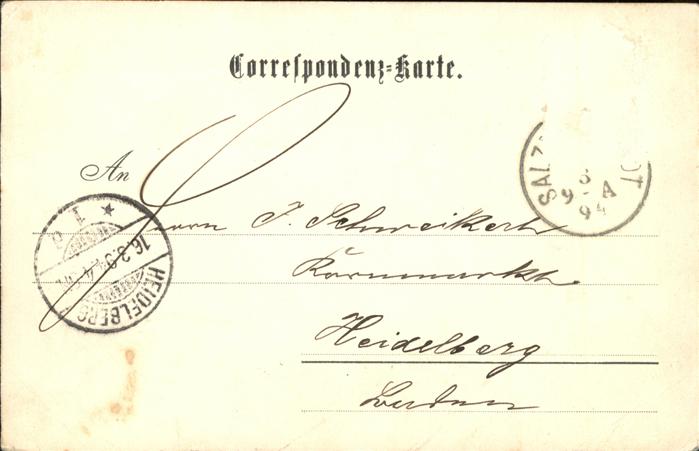 Correspondenz-Karte.
An
Herrn J. Schweikert
Kornmarkt.
Heidelberg
Baden
HEIDELBERG
16.3.9
SAL
9 A
94